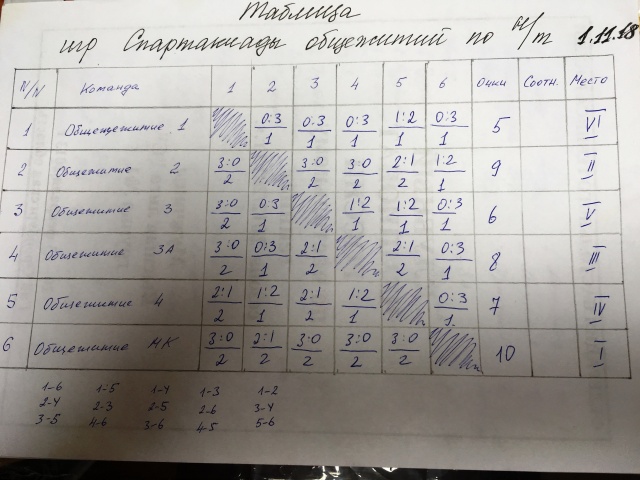 Таблица
игр Спартакиады общежитий по н/т 1.11.18
N/N Команда 1 2 3 4 5 6 Очки Соотн. Место
1 Общежитие 1 0:3 0:3 0:3 1:2 0:3 5 VI
1 1 1 1 1
2 Общежитие 2 3:0 3:0 3:0 2:1 1:2 9 II
2 2 2 2 1
3 Общежитие 3 3:0 0:3 1:2 1:2 0:3 6 V
2 1 1 1 1
4 Общежитие 3А 3:0 0:3 2:1 2:1 0:3 8 III
2 1 2 2 1
5 Общежитие 4 2:1 1:2 2:1 1:2 0:3 7 IV
2 1 2 1 1
6 Общежитие МК 3:0 2:1 3:0 3:0 3:0 10 I
2 2 2 2 2
1-6 1-5 1-4 1-3 1-2
2-4 2-3 2-5 2-6 3-4
3-5 4-6 3-6 4-5 5-6